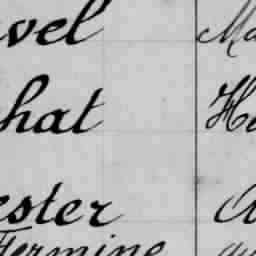 vel Ma
hat He
ester A
Fermine